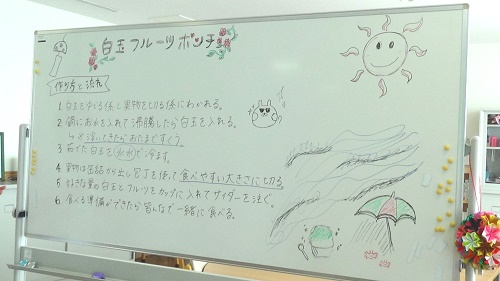 白玉フルーツポンチ
作り方と流れ
1. 白玉をゆでる係と果物を切る係にわかれる。
2. 鍋にお水を入れて沸騰したら白玉を入れる。
浮いてきたらおたまですくう。
3. 茹でた白玉を氷水で冷ます。
4. 果物は缶詰から出し包丁を使って食べやすい大きさに切る
5. 好きな量の白玉とフルーツをカップに入れてサイダーを注ぐ。
6. 食べる準備ができたら皆んなで一緒に食べる。